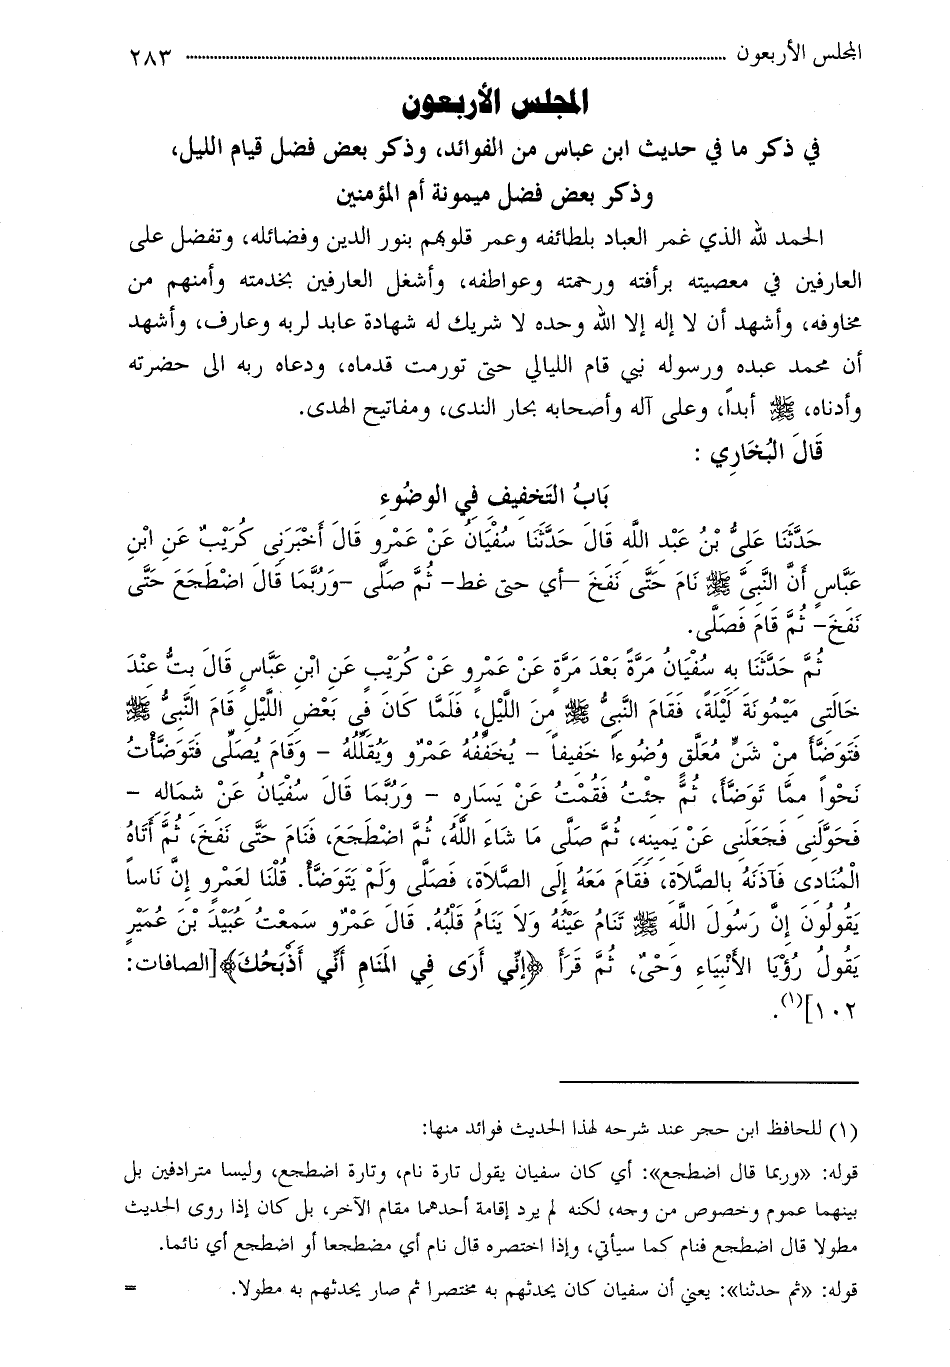 المجلس الأربعون ........................................................................ ٢٨٣
المجلس الأربعون
في ذكر ما في حديث ابن عباس من الفوائد، وذكر بعض فضل قيام الليل،
وذكر بعض فضل ميمونة أم المؤمنين
الحمد لله الذي غمر العباد بلطائفه وعمر قلوبهم بنور الدين وفضائله، وتفضل على
العارفين في معصيته برأفته ورحمته وعواطفه، وأشغل العارفين بخدمته وأمنهم من
مخاوفه، وأشهد أن لا إله إلا الله وحده لا شريك له شهادة عابد لربه وعارف، وأشهد
أن محمد عبده ورسوله نبي قام الليالي حتى تورمت قدماه، ودعاه ربه الى حضرته
وأدناه، ﷺ أبداً، وعلى آله وأصحابه بحار الندى، ومفاتيح الهدى.
قَالَ البُخَارِي :
بَابُ التَخفِيفِ فِي الوضُوءِ
حَدَّثَنَا عَلِىُّ بْنُ عَبْدِ اللَّهِ قَالَ حَدَّثَنَا سُفْيَانُ عَنْ عَمْرٍو قَالَ أَخْبَرَنِى كُرَيْبٌ عَنِ ابْنِ
عَبَّاسٍ أَنَّ النَّبِىَّ ﷺ نَامَ حَتَّى نَفَخَ –أي حتى غط– ثُمَّ صَلَّى –وَرُبَّمَا قَالَ اضْطَجَعَ حَتَّى
نَفَخَ– ثُمَّ قَامَ فَصَلَّى.
ثُمَّ حَدَّثَنَا بِهِ سُفْيَانُ مَرَّةً بَعْدَ مَرَّةٍ عَنْ عَمْرٍو عَنْ كُرَيْبٍ عَنِ ابْنِ عَبَّاسٍ قَالَ بِتُّ عِنْدَ
خَالَتِى مَيْمُونَةَ لَيْلَةً، فَقَامَ النَّبِىُّ ﷺ مِنَ اللَّيْلِ، فَلَمَّا كَانَ فِى بَعْضِ اللَّيْلِ قَامَ النَّبِىُّ ﷺ
فَتَوَضَّأَ مِنْ شَنٍّ مُعَلَّقٍ وُضُوءاً خَفِيفاً – يُخَفِّفُهُ عَمْرٌو وَيُقَلِّلُهُ – وَقَامَ يُصَلِّى فَتَوَضَّأْتُ
نَحْواً مِمَّا تَوَضَّأَ، ثُمَّ جِئْتُ فَقُمْتُ عَنْ يَسَارِهِ – وَرُبَّمَا قَالَ سُفْيَانُ عَنْ شِمَالِهِ –
فَحَوَّلَنِى فَجَعَلَنِى عَنْ يَمِينِهِ، ثُمَّ صَلَّى مَا شَاءَ اللَّهُ، ثُمَّ اضْطَجَعَ، فَنَامَ حَتَّى نَفَخَ، ثُمَّ أَتَاهُ
الْمُنَادِى فَآذَنَهُ بِالصَّلَاةِ، فَقَامَ مَعَهُ إِلَى الصَّلَاةِ، فَصَلَّى وَلَمْ يَتَوَضَّأْ. قُلْنَا لِعَمْرٍو إِنَّ نَاساً
يَقُولُونَ إِنَّ رَسُولَ اللَّهِ ﷺ تَنَامُ عَيْنُهُ وَلاَ يَنَامُ قَلْبُهُ. قَالَ عَمْرٌو سَمِعْتُ عُبَيْدَ بْنَ عُمَيْرٍ
يَقُولُ رُؤْيَا الأَنْبِيَاءِ وَحْىٌ، ثُمَّ قَرَأَ ﴿إِنِّي أَرَى فِي المَنَامِ أَنِّي أَذْبَحُكَ﴾[الصافات:
١٠٢](١).
(١) للحافظ ابن حجر عند شرحه لهذا الحديث فوائد منها:
قوله: «وربما قال اضطجع»: أي كان سفيان يقول تارة نام، وتارة اضطجع، وليسا مترادفين بل
بينهما عموم وخصوص من وجه، لكنه لم يرد إقامة أحدهما مقام الآخر، بل كان إذا روى الحديث
مطولا قال اضطجع فنام كما سيأتي، وإذا اختصره قال نام أي مضطجعا أو اضطجع أي نائما.
قوله: «ثم حدثنا»: يعني أن سفيان كان يحدثهم به مختصرا ثم صار يحدثهم به مطولا. =